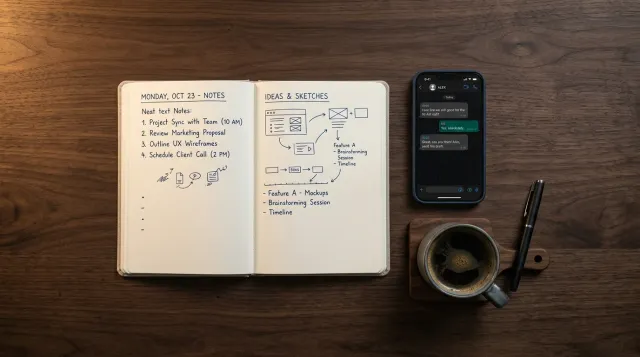 MONDAY, OCT 23 - NOTES
Neat text Notes:
1. Project Sync with Team (10 AM)
2. Review Marketing Proposal
3. Outline UX Wireframes
4. Schedule Client Call (2 PM)
IDEAS & SKETCHES
Feature A
- Brainstorming
Session
- Timeline
- Feature A - Mockups
- Brainstorming Session
- Timeline
ALEX